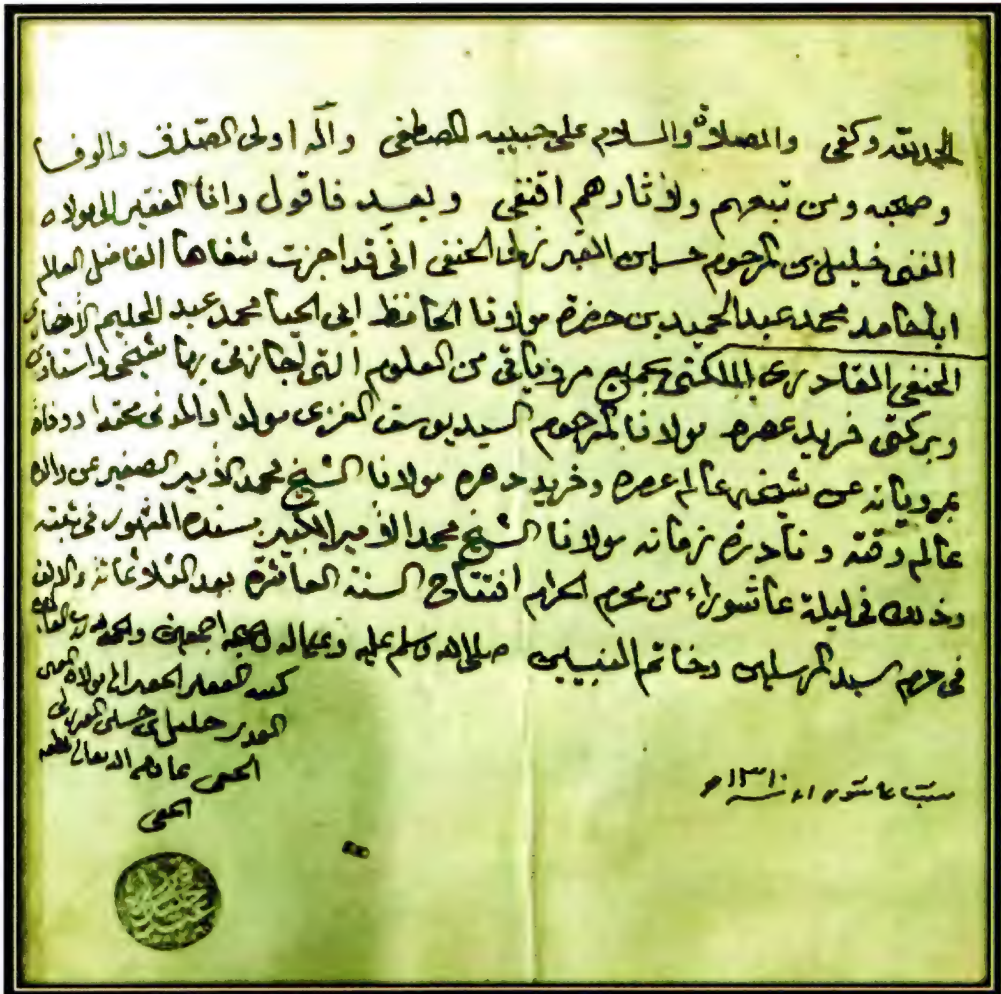 الحمد لله وكفى والصلاة والسلام على حبيبه المصطفى وآله اولى الصدق والوفا
وصحبه ومن تبعهم ولآثارهم اقتفى وبعد فاقول وانا الفقير الى مولاه
الغنى خليل بن المرحوم حسين الحنفى انى قد اجزت شفاها الفاضل العالم
ابا حامد محمد عبد الحميد بن حضرة مولانا الحافظ ابى الحيا محمد عبد الحليم الأنصارى
الحنفى القادرى بجميع مروياتى من العلوم التى اجازنى بها شيخى واستاذى
وبركتى فريد عصره مولانا المرحوم السيد يوسف الغزى مولدا والمدنى ووفاة
بمروياته عن شيخه عالم عصره وفريد دهره مولانا الشيخ محمد الأمير الصغير عن والده
عالم وقته ونادرة زمانه مولانا الشيخ محمد الأمير الكبير بسنده المشهور فى ثبته
وذلك فى ليلة عاشوراء من محرم الحرام افتتاح السنة العاشرة بعد الثلاثمائة والالف
فى حرم سيد المرسلين وخاتم النبيين صلى الله وسلم عليه وعلى اله اجمعين والحمد لله رب
كتبه الفقير الحقير الى مولاه
خليل بن
الحنفى
الخفى
١٣١٠